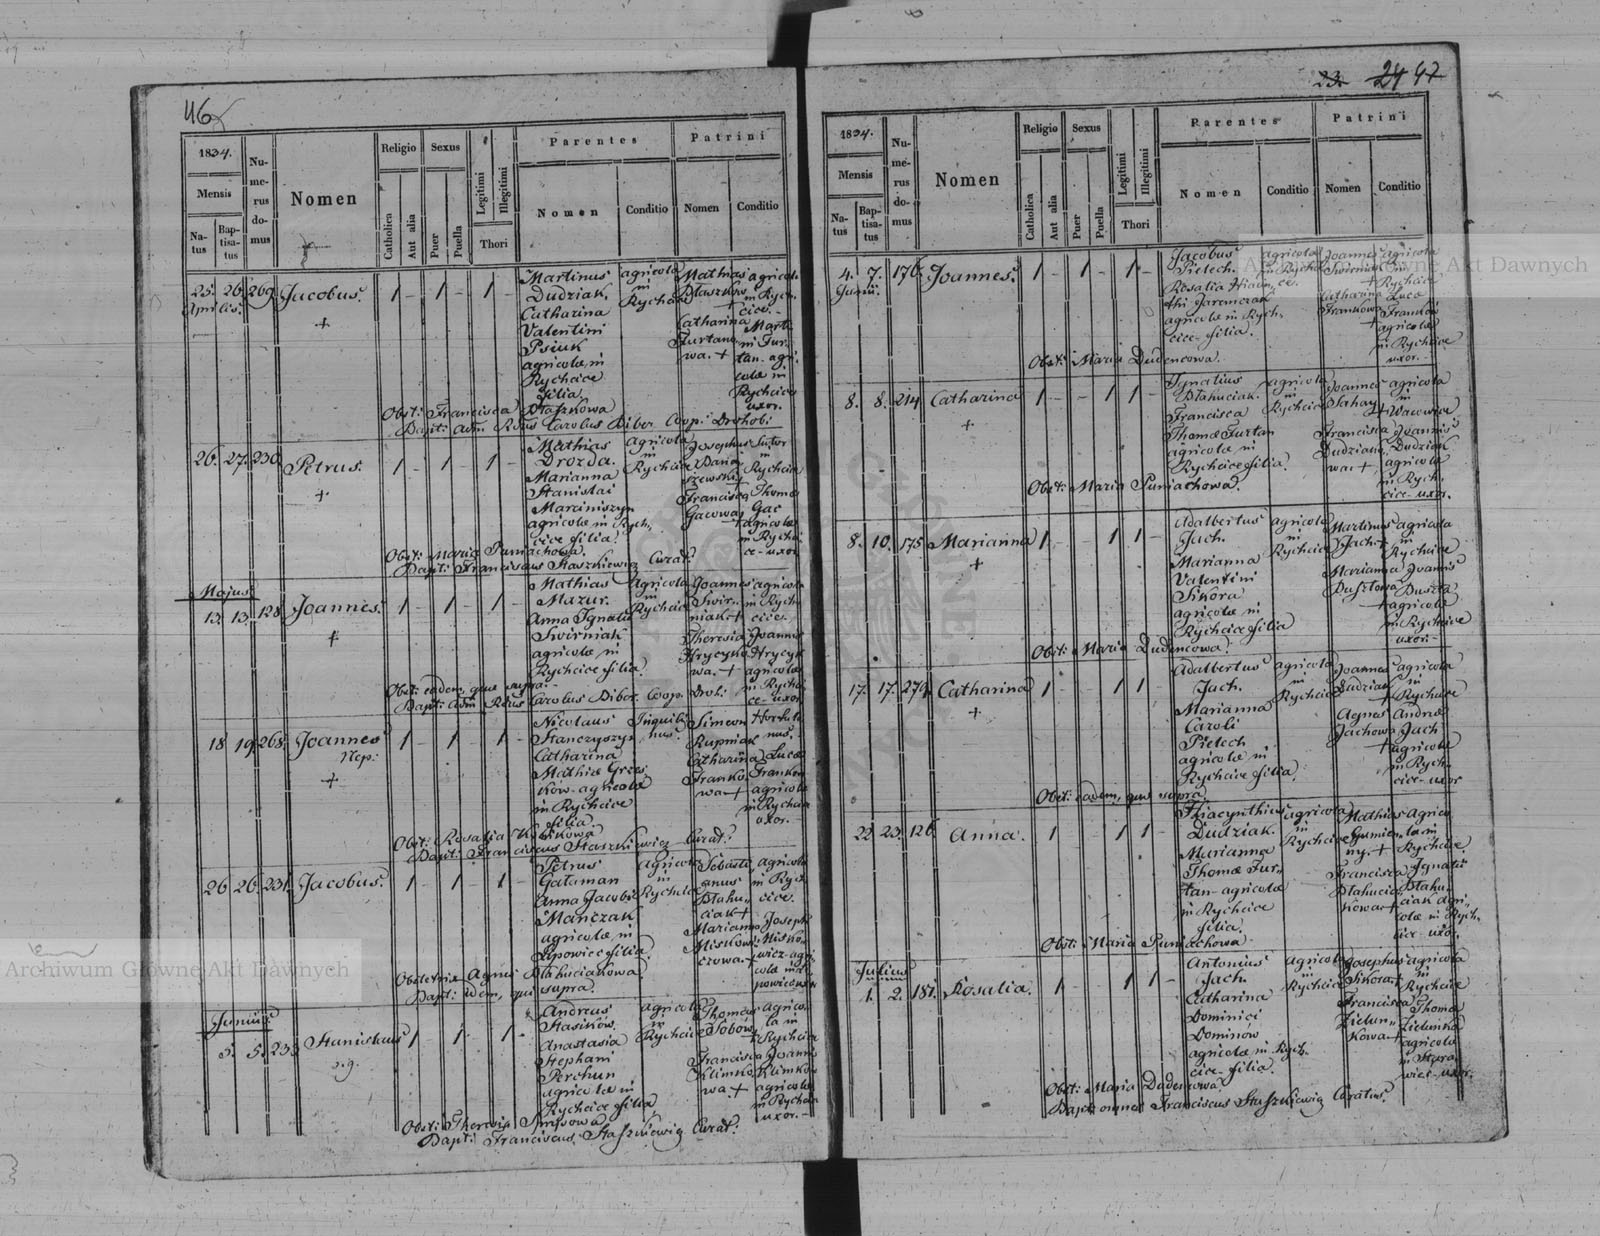 46
1834.
Mensis
Natus
Baptisatus
Numerus domus
Nomen
Religio
Catholica
Aut alia
Sexus
Puer
Puella
Legitimi
Illegitimi
Thori
Parentes
Nomen
Conditio
Patrini
Nomen
Conditio
25. 26. 269. Jacobus. 1 - 1 - 1 -
Aprilis.
Martinus
Dudziak.
Catharina
Valentini
Psiuk
agricolæ in
Rychcice
filia.
agricola
in
Rychcice
Mathias
Błaszków
Catharina
Furtano
wa. +
agricola
in Rych
cice.
Marti
ni Fur
tan. agri
colæ in
Rychcice
uxor.
Obst: Francisca Błaszkowa
Bapt: Adm Rdus Carolus Biber Coop: Drohob:
26. 27. 230. Petrus. 1 - 1 - 1 -
Mathias
Drozda.
Marianna
Stanislai
Marciniszyn
agricolæ in Rych
cice filia.
agricola
in
Rychcice
Josephus
Francisca
Gacowa
Sutor
in
Rychcice
Thomæ
Gac
agricolæ
in Rychci
ce - uxor
Obst: Maria Puniachowa.
Bapt: Franciscus Staszkiewicz Curat:
Majus
13. 13. 128. Joannes. 1 - 1 - 1 -
Mathias
Mazur.
Anna Ignatii
Swirniak
agricolæ in
Rychcice filia.
Agricola
in
Rychcice
Joannes
Swir
niak +
Theresia
Hrycyko
wa. +
agricola
in Rych
cice.
Joannis
Hrycyk
agricolæ
in Rychci
ce - uxor
Obst: eadem, quæ supra.
Bapt: Adm Rdus Carolus Biber. Coop. Droh:
18 19 268. Joannes 1 - 1 - 1 -
Nep:
Nicolaus
Franczyszyn
Catharina
Mathiæ Grzes
ków - agricolæ
in Rychcice
filia.
Inquili
nus.
Simeon
Rupniak
Catharina
Franko
wa +
Hortula
nus.
Lucæ
Franków
agricolæ
in Rychcice
uxor. -
Obst: Rosalia
Bapt: Franciscus Staszkiewicz Curat:
26 26. 231. Jacobus. 1 - 1 - 1 -
Petrus
Gataman
Anna Jacobi
Mańczak
agricolæ in
Lipowiec filia.
Agricola
in
Rychcice
Sebasti
anus
Błahu
ciak +
Marianna
agricola
in Rych
cice.
Josephi
Misko
wicz - agri
colæ in Li
powiec uxor
Obstetrix Agnes Błahuciakowa
Bapt: idem, qui supra.
Junius
5. 5. 23 Stanislaus 1 1 - 1 -
Andreas
Stasików.
Anastasia
Stephani
Perchun
agricolæ in
Rychcice filia,
agricola
in
Rychcice
Thomas
Sobow
Francisca
Klimko
wa. +
agrico
la in
Rychcice
Joannis
Klimków
agricolæ
in Rychcice
uxor. -
Obst: Theresia
Bapt: Franciscus Staszkiewicz Curat:
23. 24 47
1834.
Mensis
Natus
Baptisatus
Numerus domus
Nomen
Religio
Catholica
Aut alia
Sexus
Puer
Puella
Legitimi
Illegitimi
Thori
Parentes
Nomen
Conditio
Patrini
Nomen
Conditio
4. 7. 176. Joannes. 1 - 1 - 1 -
Junii.
Jacobus
Pietech.
Rosalia Hiacin
thi Jarenczak
agricolæ in Rych
cice - filia.
agricola
in Rychci
ce.
Joannes
Swirniak
Catharina
Frankowa
agricola
in
Rychcice
Lucæ
Franków
agricolæ
in Rychcice
uxor. -
Obst: Maria Dudencowa.
8. 8. 214 Catharina 1 - - 1 1 -
Ignatius
Błahuciak.
Francisca
Thomæ Furtan
agricolæ in
Rychcice filia.
agricola
in
Rychcice
Joannes
Sahay
Francisca
Dudziano
wa. +
agricola
in
Wacowice.
Joannis
Dudziak
agricolæ
in Rych
cice - uxor.
Obst: Maria Puniachowa.
8. 10. 175 Marianna 1 - - 1 1 -
Adalbertus
Jach.
Marianna
Valentini
Sikora
agricolæ in
Rychcice filia
agricola
in
Rychcice
Martinus
Jach +
Marianna
Dusztowa
agricola
in
Rychcice
Joannis
Duszta
agricolæ
in Rychcice
uxor. -
Obst: Maria Dudencowa.
17. 17. 279. Catharina 1 - - 1 1 -
Adalbertus
Jach.
Marianna
Caroli
Pietech
agricolæ in
Rychcice filia.
agricola
in
Rychcice
Joannes
Dudziak
Agnes
Jachowa
agricola
in
Rychcice
Andreæ
Jach
agricolæ
in Rych
cice - uxor
Obst: eadem, quæ supra
22. 23. 126. Anna. 1 - - 1 1 -
Hiacynthus
Dudziak.
Marianna
Thomæ Fur
tan - agricolæ
in Rychcice
filia.
agricola
in
Rychcice
Mathias
Gumien
ny. +
Francisca
Błahucia
kowa +
agrico
la in
Rychcice
Ignatii
Błahu
ciak agri
colæ in Rych
cice - uxor.
Obst: Maria Puniachowa
Julius
1. 2. 181. Rosalia. 1 - - 1 1 -
Antonius
Jach.
Catharina
Dominici
Dominów
agricolæ in Rych
cice - filia.
agricola
in
Rychcice
Josephus
Sikora +
Francisca
Zielin
kowa +
agricola
in
Rychcice
Thomæ
Zielinka
agricolæ
in Stara
wies - uxor.
Obst: Maria Dudencowa
Bapt: omnes Franciscus Staszkiewicz Curatus.
Archiwum Główne Akt Dawnych
Archiwum Główne Akt Dawnych